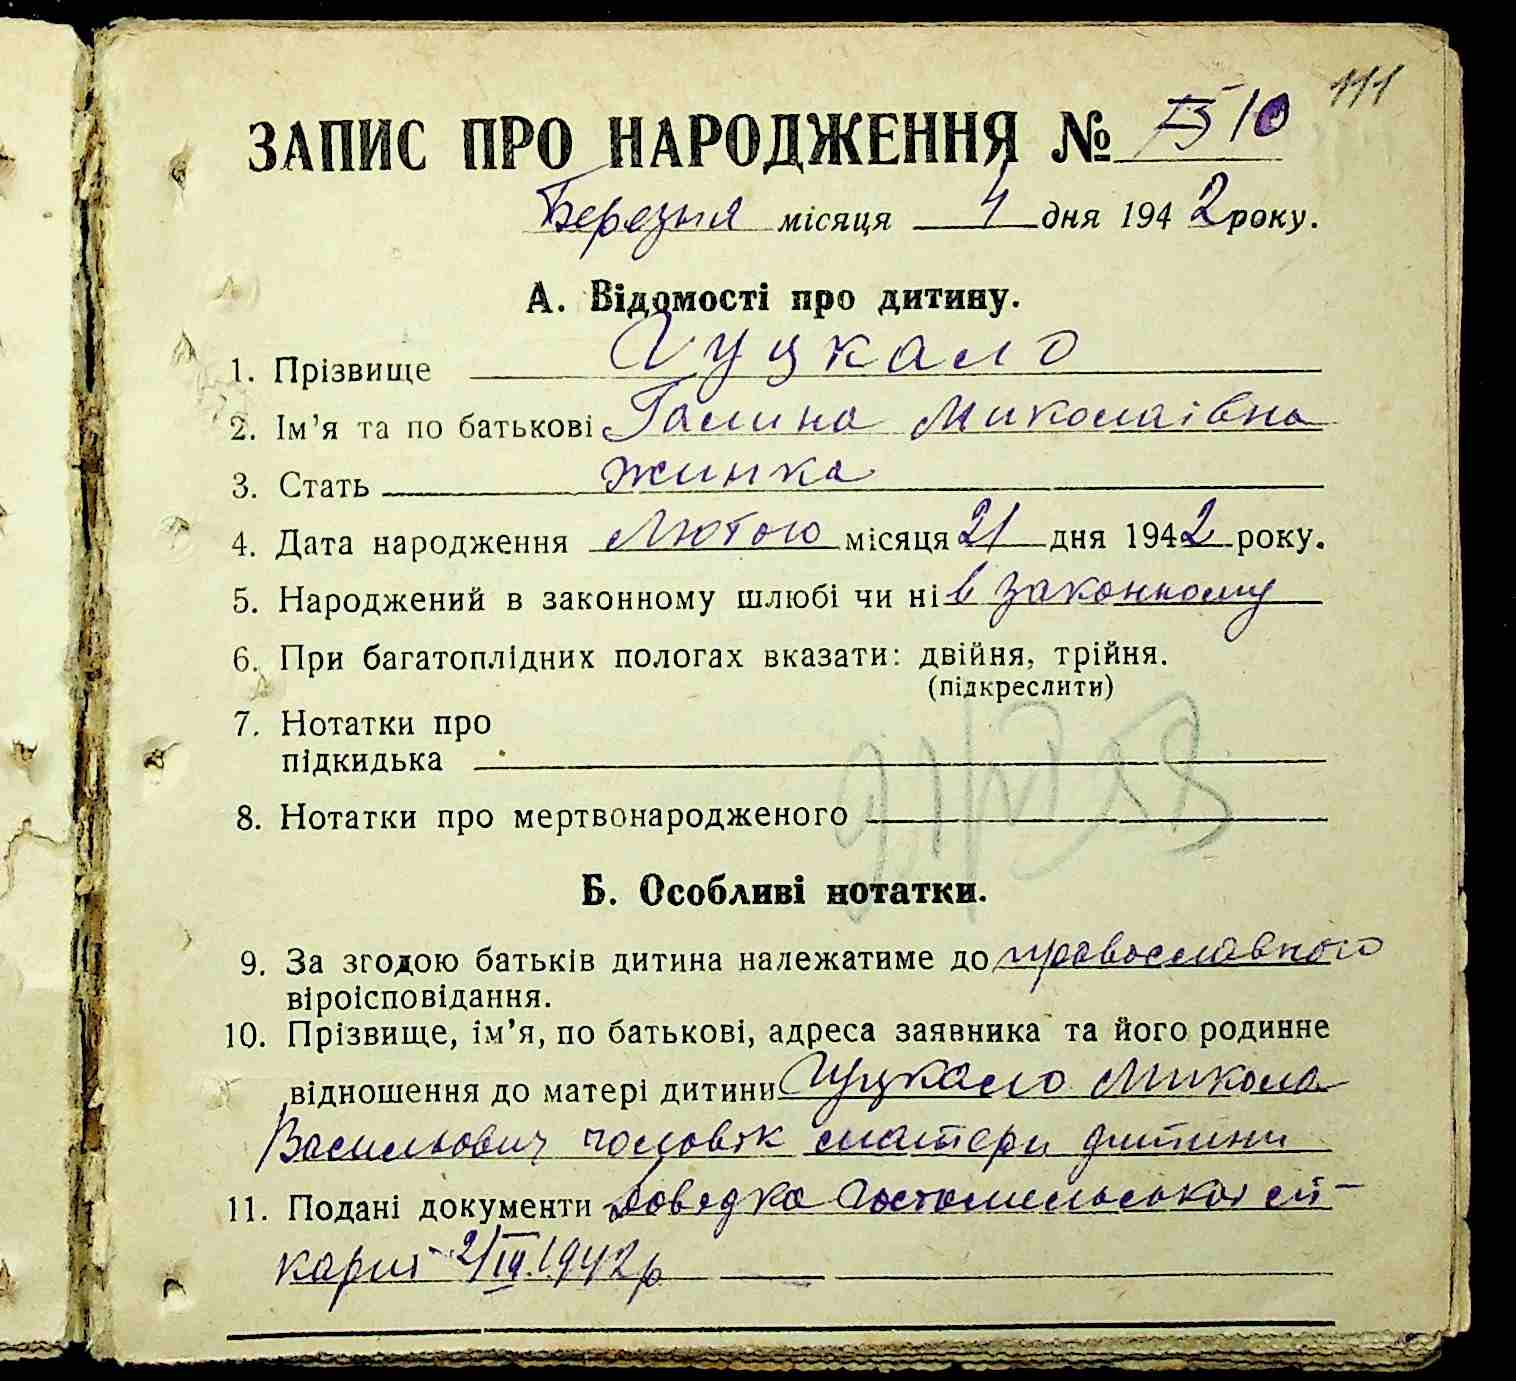 111
ЗАПИС ПРО НАРОДЖЕННЯ № 10
Березня місяця 4 дня 1942 року.
А. Відомості про дитину.
1. Прізвище Гуцкало
2. Ім'я та по батькові Галина Миколаівна
3. Стать жинка
4. Дата народження Лютого місяця 21 дня 1942 року.
5. Народжений в законному шлюбі чи ні в законному
6. При багатоплідних пологах вказати: двійня, трійня.
(підкреслити)
7. Нотатки про
підкидька
8. Нотатки про мертвонародженого
Б. Особливі нотатки.
9. За згодою батьків дитина належатиме до православного
віроісповідання.
10. Прізвище, ім'я, по батькові, адреса заявника та його родинне
відношення до матері дитини Гуцкало Микола
Васильович чоловік матери дитини
11. Подані документи Довидка Гостомельськоі лі-
карні 2/III.1942р